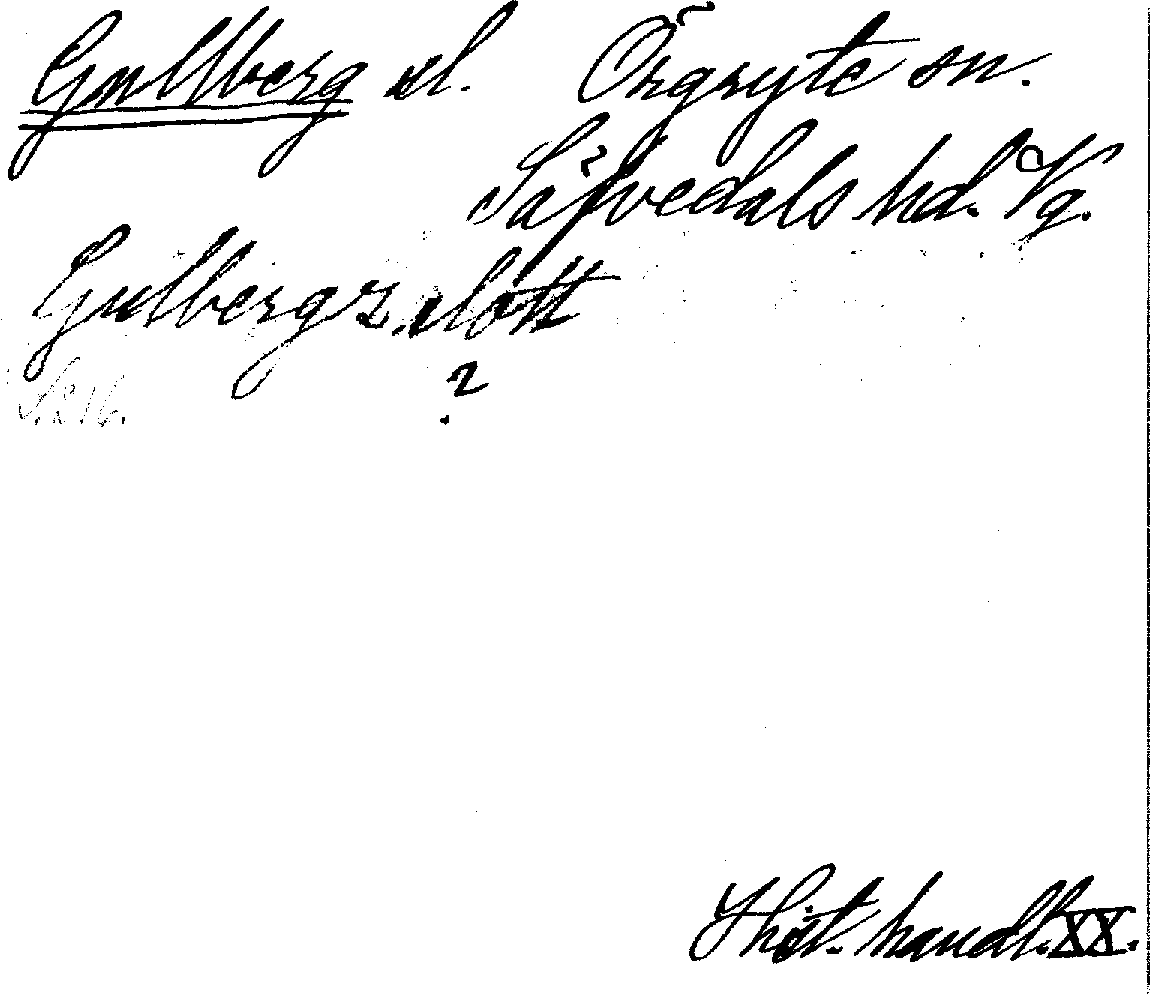 Gullberg sl. Örgryte sn.
Säfvedals hd. Vg.
Gulbergs slott
S. 216. ?
Hist. handl. XX.